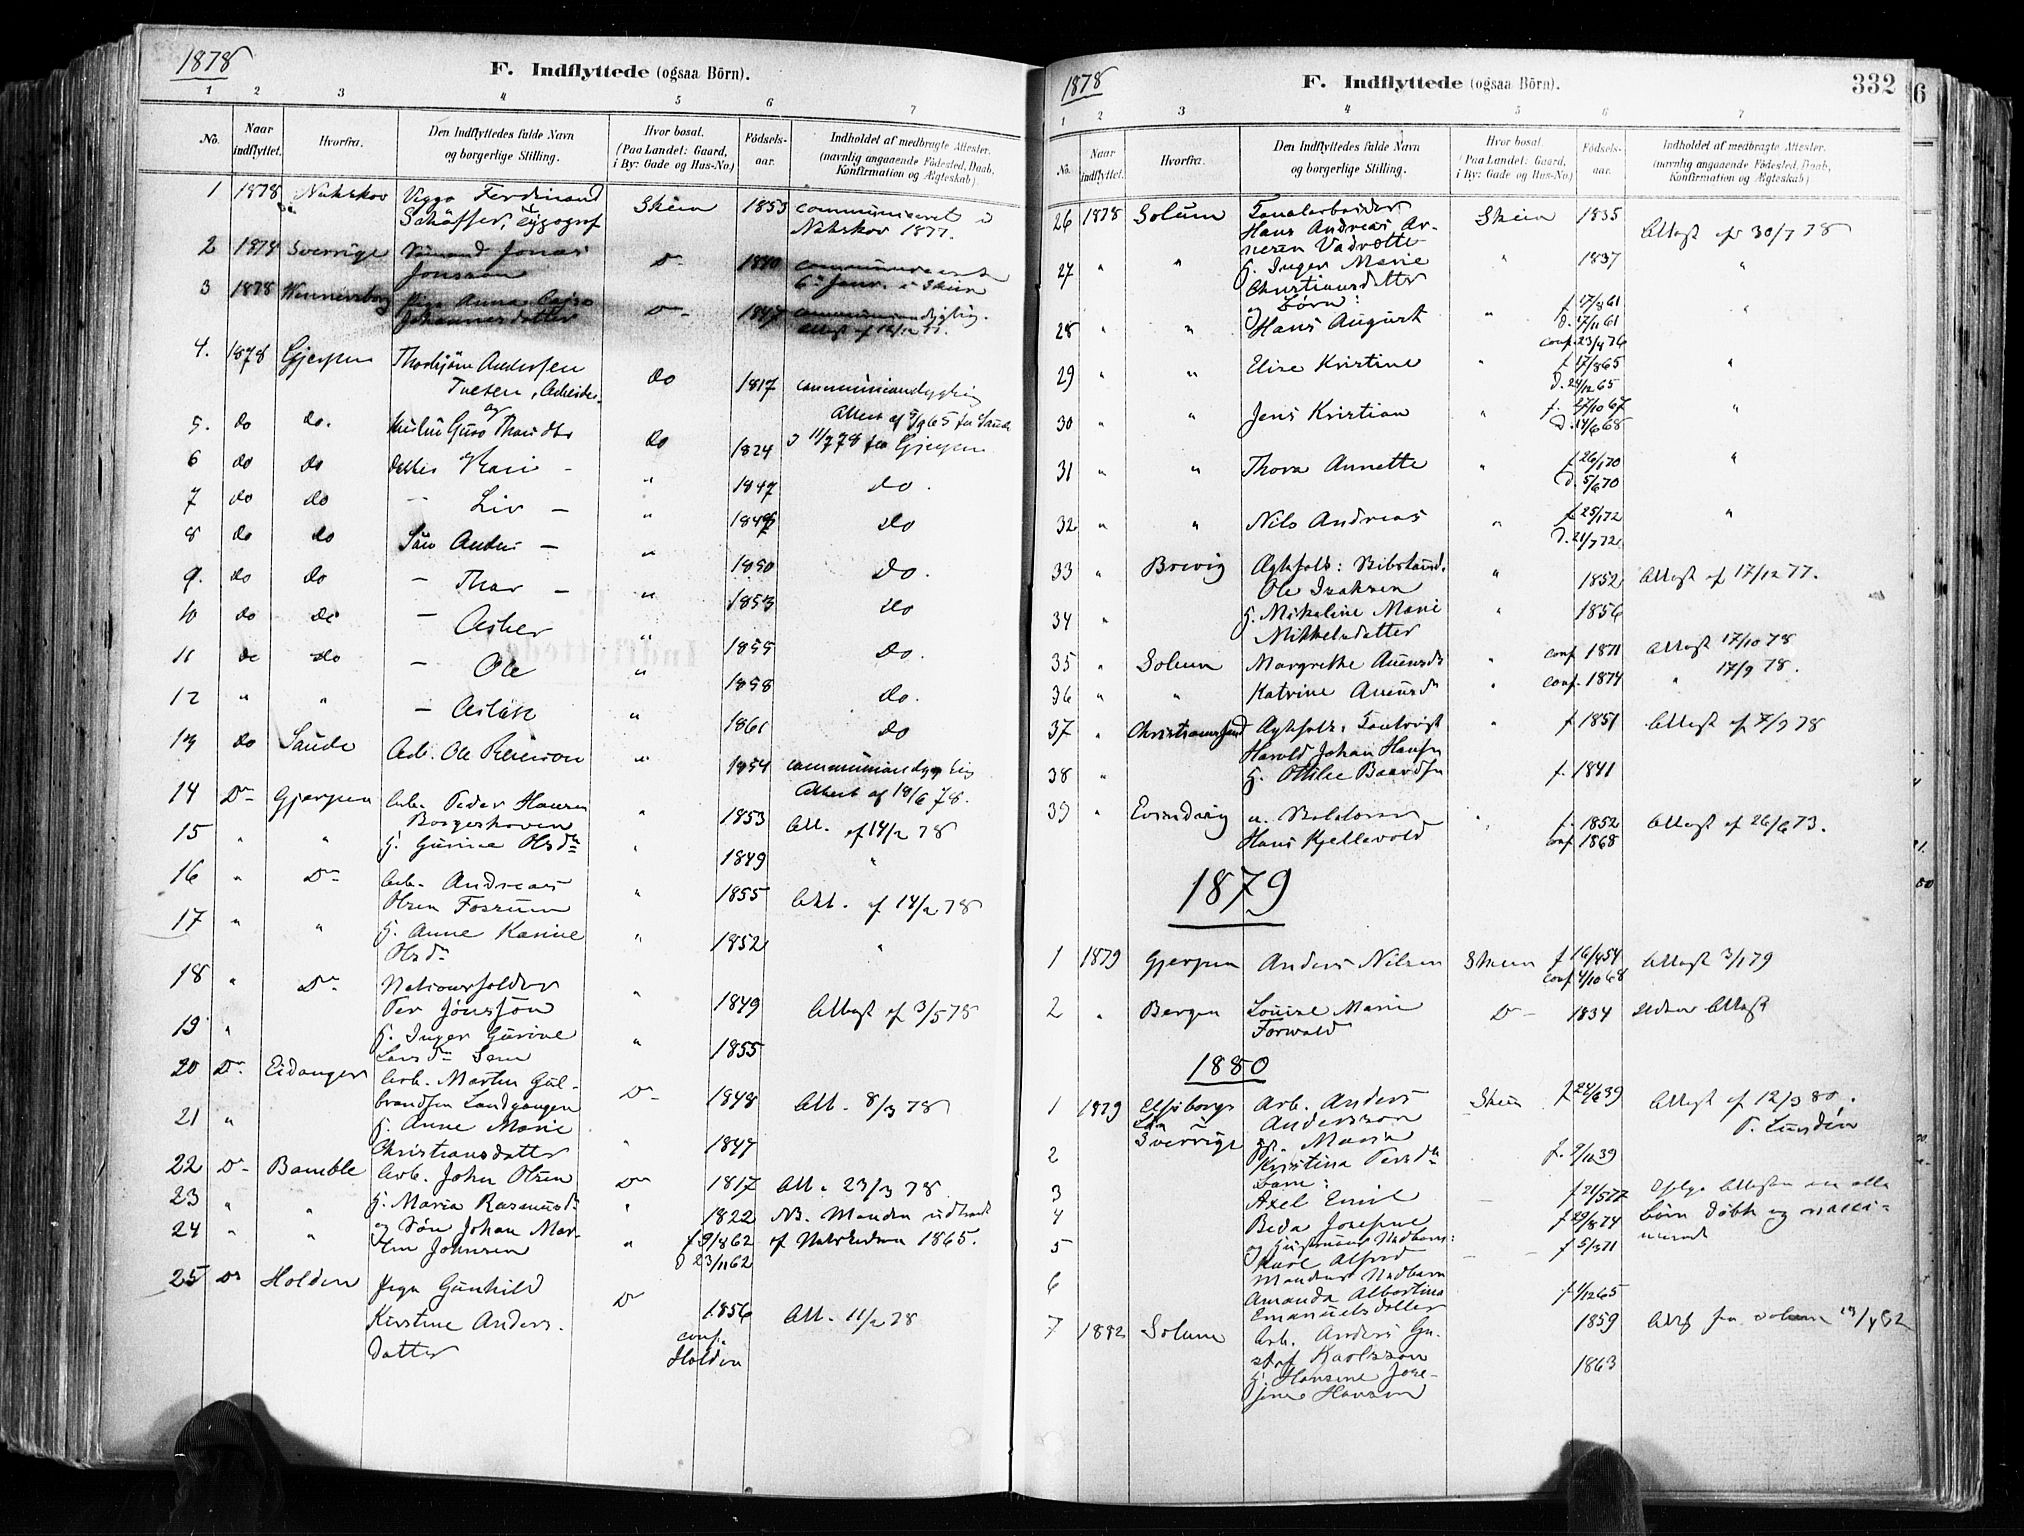 1878
F. Indflyttede (ogsaa Börn).
1 2 3 4 5 6 7
No. Naar indflyttet. Hvorfra. Den Indflyttedes fulde Navn og borgerlige Stilling. Hvor bosat. (Paa Landet: Gaard, i By: Gade og Hus-No.) Födsels-aar. Indholdet af medbragte Attester. (navnlig angaaende Födested, Daab, Konfirmation og Ægteskab)
1 1878 Nakskov Viggo Ferdinand Skien 1853 communiceret i
Schäffer, Typograf Nakskov 1877.
2 1878 Sverrige Jonas Do 1840
Jonsson 6te Janr. i Skien
3 1878 Wennersborg Pige Anna Cajsa Do 1847 communiondygtig.
Johannesdatter Attest af 12/12 77.
4. 1878 Gjerpen Thorbjörn Andersen do 1817 communiondygtig
Tveten, Arbeider Attest af 9/9 65 fra Saude
og
5. do do. Hustru Guro Thorsdtr do 1824 & 11/7 78 fra Gjerpen
6 do do datter Kari - " 1847 do.
7 do do - Liv - " 1849 do
8 do do Sön Anders - " 1850 do.
9. do do - Thor - " 1853 do
10 do do - Asber " 1855 do.
11 do do - Ole " 1858 do.
12 " " - Aslak " 1861 do
13 do Saude Arb. Ole Reierson " 1854 communiondygtig
Attest af 19/6 78.
14 Do Gjerpen Arb. Peder Hansen " 1853 Att. af 14/2 78
Borgeskoven
15 " " H. Gurine Olsdr " 1849 "
16 " Do Arb. Andreas " 1855 Att. af 14/2 78
Olsen Fossum
17 " " H. Anne Karine " 1852 "
Olsdr
18 " Do Natursfolder " 1849 Attest af 3/5 78
Per Jönssön
19 " H. Inger Gurine " 1855
Larsdr Sem
20 Do. Eidanger Arb. Martin Gul- Do 1848 Att. 8/3 78
brandsen Landgangen
21 " H. Anne Marie " 1847
Christiansdatter
22 Do Bamble Arb. John Olsen Do 1817 Att. 23/3 78
23 " " H. Maria Rasmusdr " 1822 NB. Manden udtraadt
24 " " og Sön Johan Mar- " f 9/8 62 af Statskirken 1865.
tin Johnsen d 23/11 62
25 Do Holden Pige Gunhild Do 1856 Att. 11/2 78
Kirstine Anders- conf.
datter Holden
1878
F. Indflyttede (ogsaa Börn). 332
1 2 3 4 5 6 7
No. Naar indflyttet. Hvorfra. Den Indflyttedes fulde Navn og borgerlige Stilling. Hvor bosat. (Paa Landet: Gaard, i By: Gade og Hus-No.) Födsels-aar. Indholdet af medbragte Attester. (navnlig angaaende Födested, Daab, Konfirmation og Ægteskab)
26 1878 Solum Skien 1835 Attest af 30/7 78
Hans Andreas Ar-
nesen Vadrette
27 " " H. Inger Marie " 1837 "
Christiansdatter
og Börn: f 17/8 61
28 " " Hans August " d. 17/11 61 "
conf. 23/4 76
29 " " Elise Kristine f 17/8 65 "
d. 24/12 65
30 " Jens Kristian " f. 27/10 67 "
d. 14/6 68
31 " " Thora Annette " f 26/1 70 "
d. 5/6 70
32 " " Nils Andreas " f 25/1 72 "
d. 21/7 72
33 " Brevig Ægtefolk: " 1852 Attest af 17/12 77.
Ole Isaksen
34 " H. Mikaline Marie " 1856
Mikkelsdatter
35 " Solum Margrethe " conf. 1871 Attest 17/10 78
36 " " Katrine " conf. 1874 " 17/9 78.
37 " Christianssund Ægtefolk: " f 1851 Attest af 7/9 78
Harold Johan Hansen
38 " H. Ottilie Baardsen f. 1841
39 " Evindvig " f. 1852 Attest af 26/6 73.
Hans Kjellevold conf 1868
1879
1 1879 Gjerpen Anders Nilsen Skien f 16/4 54 Attest 3/1 79
conf 4/10 68
2 " Bergen Louise Marie Do 1834 uden Attest
Forwald
1880
1 1879 Elfsborgs Arb. Anders Skien f 24/6 39 Attest af 12/3 80.
Län Andersson P. Lundén
Sverrige
2 Maria f. 9/10 39
Kristina Persdr
Barn:
3 Axel Emil f 21/5 77
4 Beda Josefine f 29/8 74 Börn döbt og vacci-
5 og Hustruens f 5/3 71 nerede
Karl Alfred
6 Mandens f 1/12 65
Amanda Albertina
Emanuelsdotter
7 1882 Solum Arb. Anders Gu- 1859 Att. fra Solum
staf Karlsson
H. Hansine Jose- 1863
fine Hansen